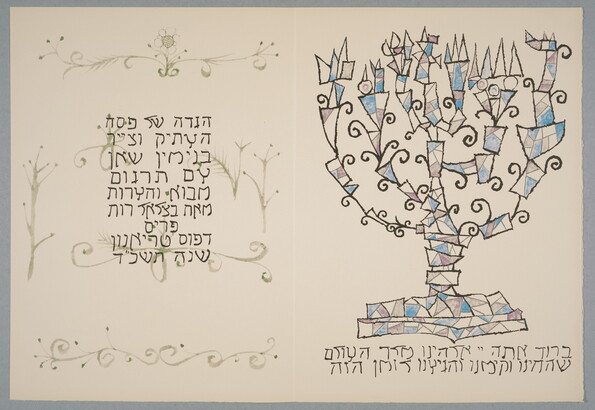 הגדה של פסח
העתיק וצייר
בנימין שאן
עם תרגום
מבוא והערות
מאת בצלאל רות
פריס
דפוס טריאנון
שנה תשל״ד
ברוך אתה יי אלהינו מלך העולם
שהחינו וקימנו והגיענו לזמן הזה